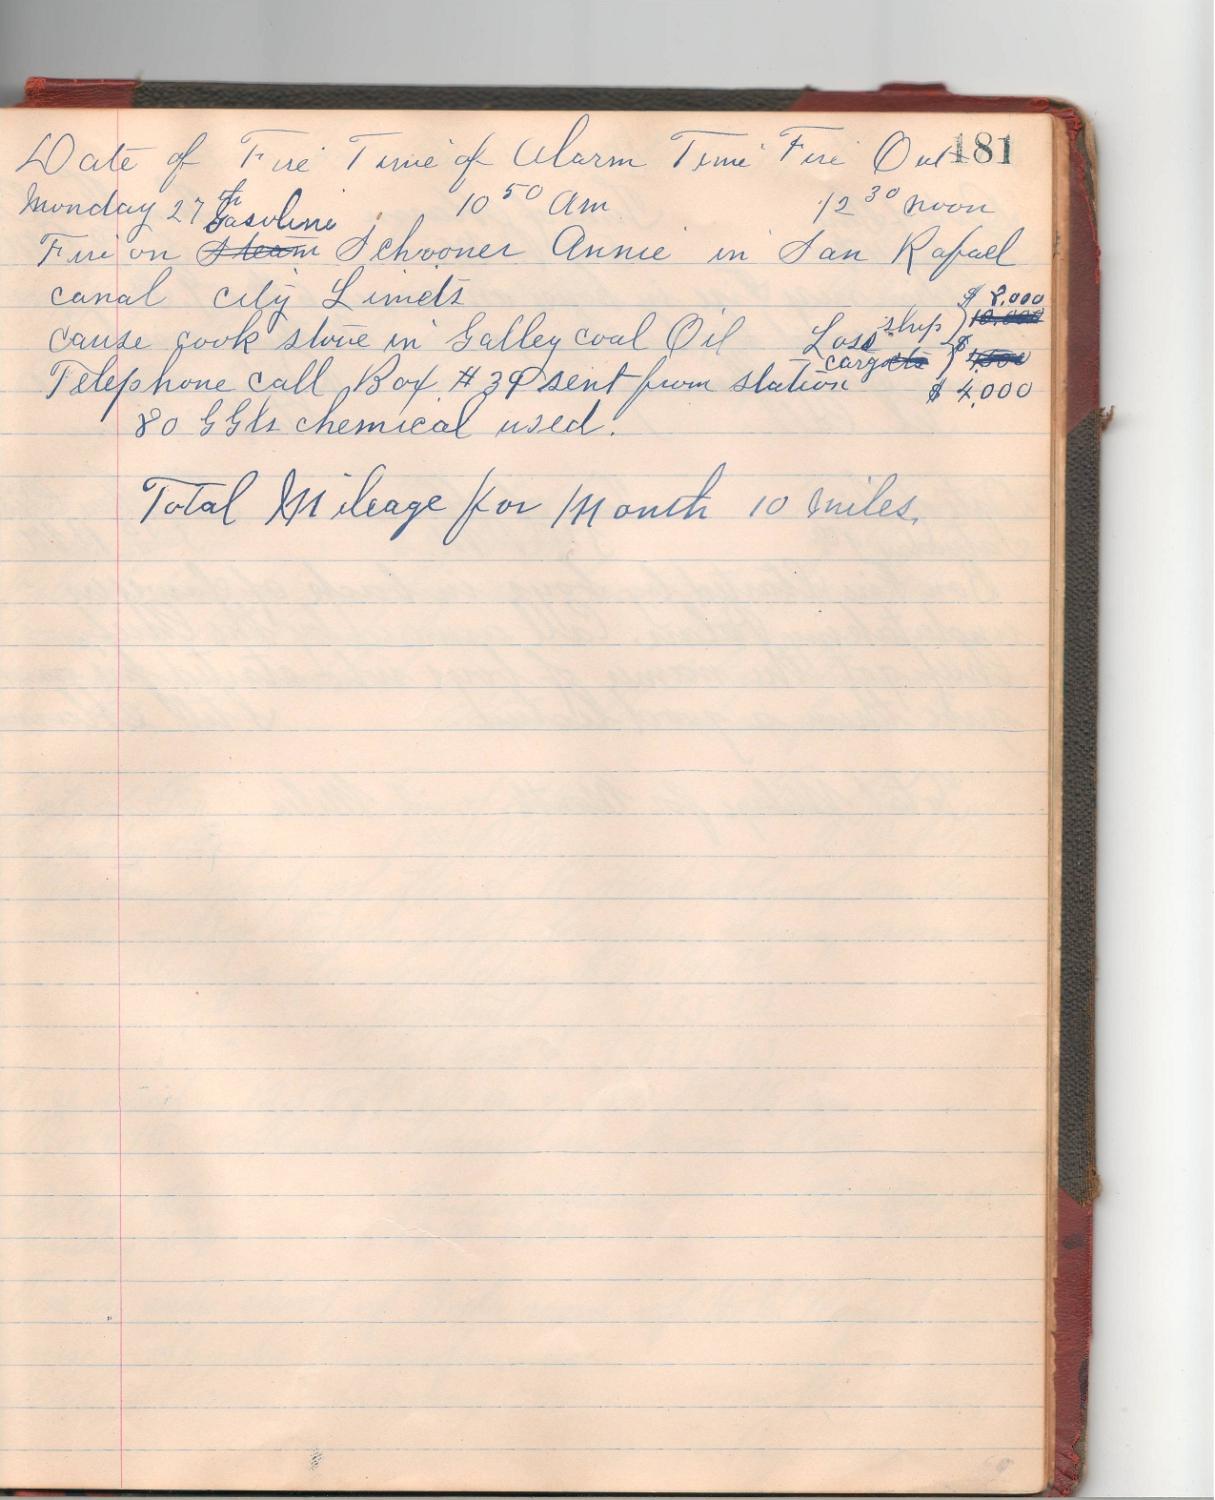 Date of Fire Time of Alarm Time Fire Out 181
Monday 27th 10 50 Am 12 30 noon
Gasoline
Fire on Steam Schooner Annie in San Rafael
canal city Limets $ 8,000
cause cook stove in Galley coal Oil Loss ship 10,000
cargo $
Telephone call Box # 39 sent from station $ 4,000
80 GGls chemical used.
Total Mileage for Month 10 miles.